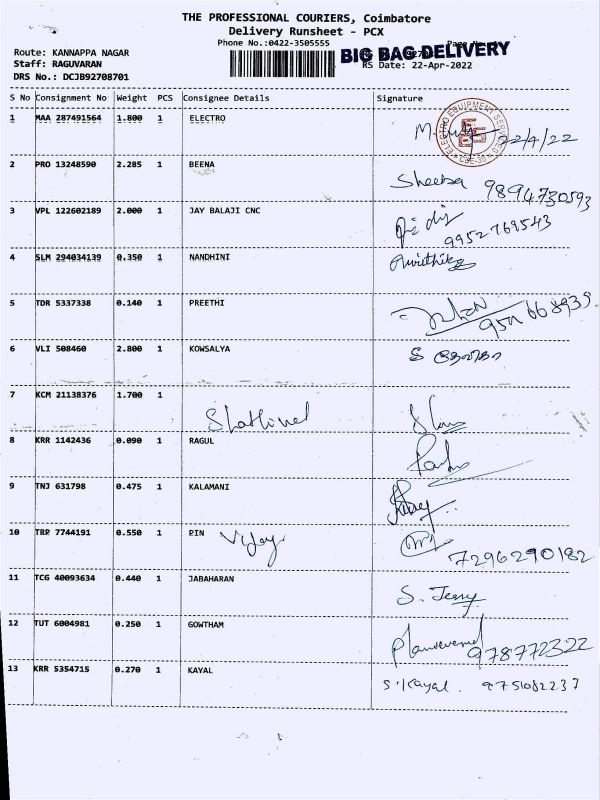 THE PROFESSIONAL COURIERS, Coimbatore
Delivery Runsheet - PCX
Phone No.:0422-3505555
BIG BAG DELIVERY
Route: KANNAPPA NAGAR
Staff: RAGUVARAN
RS Date: 22-Apr-2022
DRS No.: DCJB92708701
S No Consignment No Weight PCS Consignee Details Signature
1 MAA 287491564 1.800 1 ELECTRO
ELECTRO EQUIPMENT SERVICES CBE-30
22/4/22
2 PRO 13248590 2.285 1 BEENA
Sheeba 9894730593
3 VPL 122602189 2.000 1 JAY BALAJI CNC
9952769543
4 SLM 294034139 0.350 1 NANDHINI
5 TDR 5337338 0.140 1 PREETHI
6 VLI 508460 2.800 1 KOWSALYA
7 KCM 21138376 1.700 1
8 KRR 1142436 0.090 1 RAGUL
9 TNJ 631798 0.475 1 KALAMANI
10 TRP 7744191 0.550 1 PIN Vijay
7296290182
11 TCG 40093634 0.440 1 JABAHARAN
S. Jeery
12 TUT 6004981 0.250 1 GOWTHAM
978772322
13 KRR 5354715 0.270 1 KAYAL S.Kayal. 9751082237